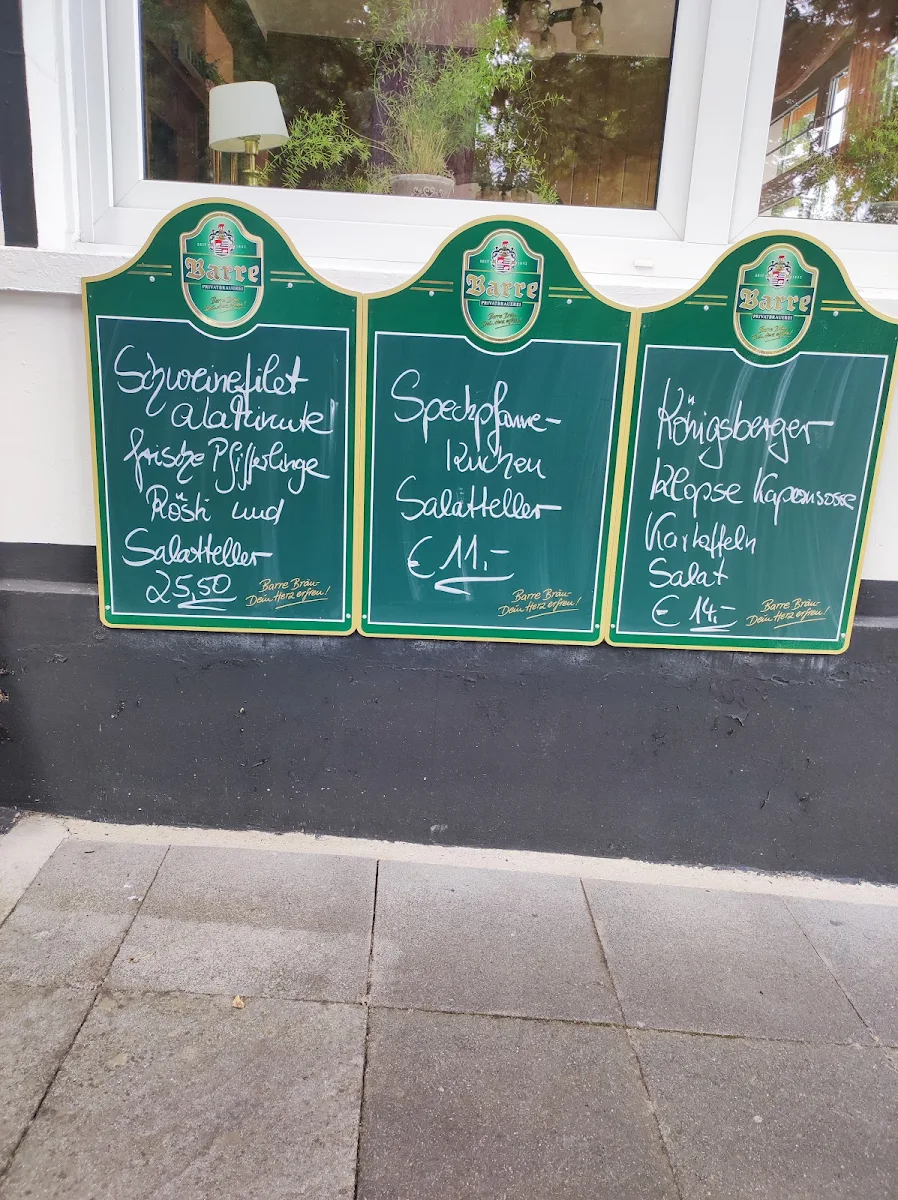 Barre
PRIVATBRAUEREI
Schweinefilet
alaminute
frische Pfifferlinge
Rösti und
Salatteller
25,50
Barre Bräu-
Dein Herz erfreu!
Barre
PRIVATBRAUEREI
Speckpfanne-
kuchen
Salatteller
€ 11,-
Barre Bräu-
Dein Herz erfreu!
Barre
PRIVATBRAUEREI
Königsberger
klopse Kapernsosse
Kartoffeln
Salat
€ 14,-
Barre Bräu-
Dein Herz erfreu!